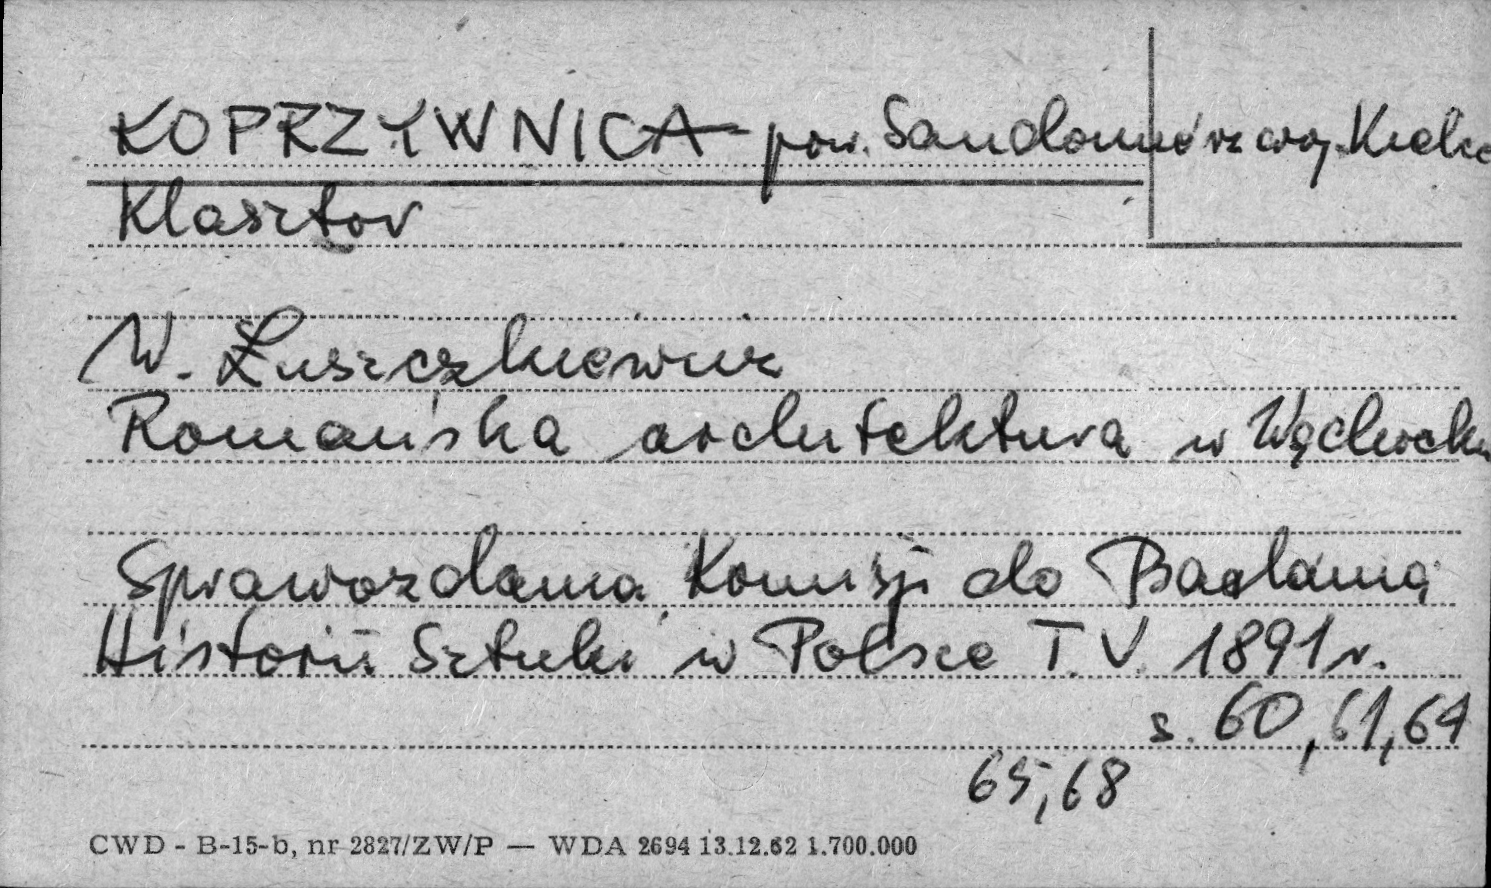 KOPRZYWNICA pow. Sandomierz woj. Kielce
Klasztor
W. Łuszczkiewicz
Romańska architektura w Wąchocku
Sprawozdania Komisji do Badania
Historii Sztuki w Polsce T. V. 1891 r.
s. 60, 61, 64
65, 68
CWD - B-15-b, nr 2827/ZW/P — WDA 2694 13.12.62 1.700.000